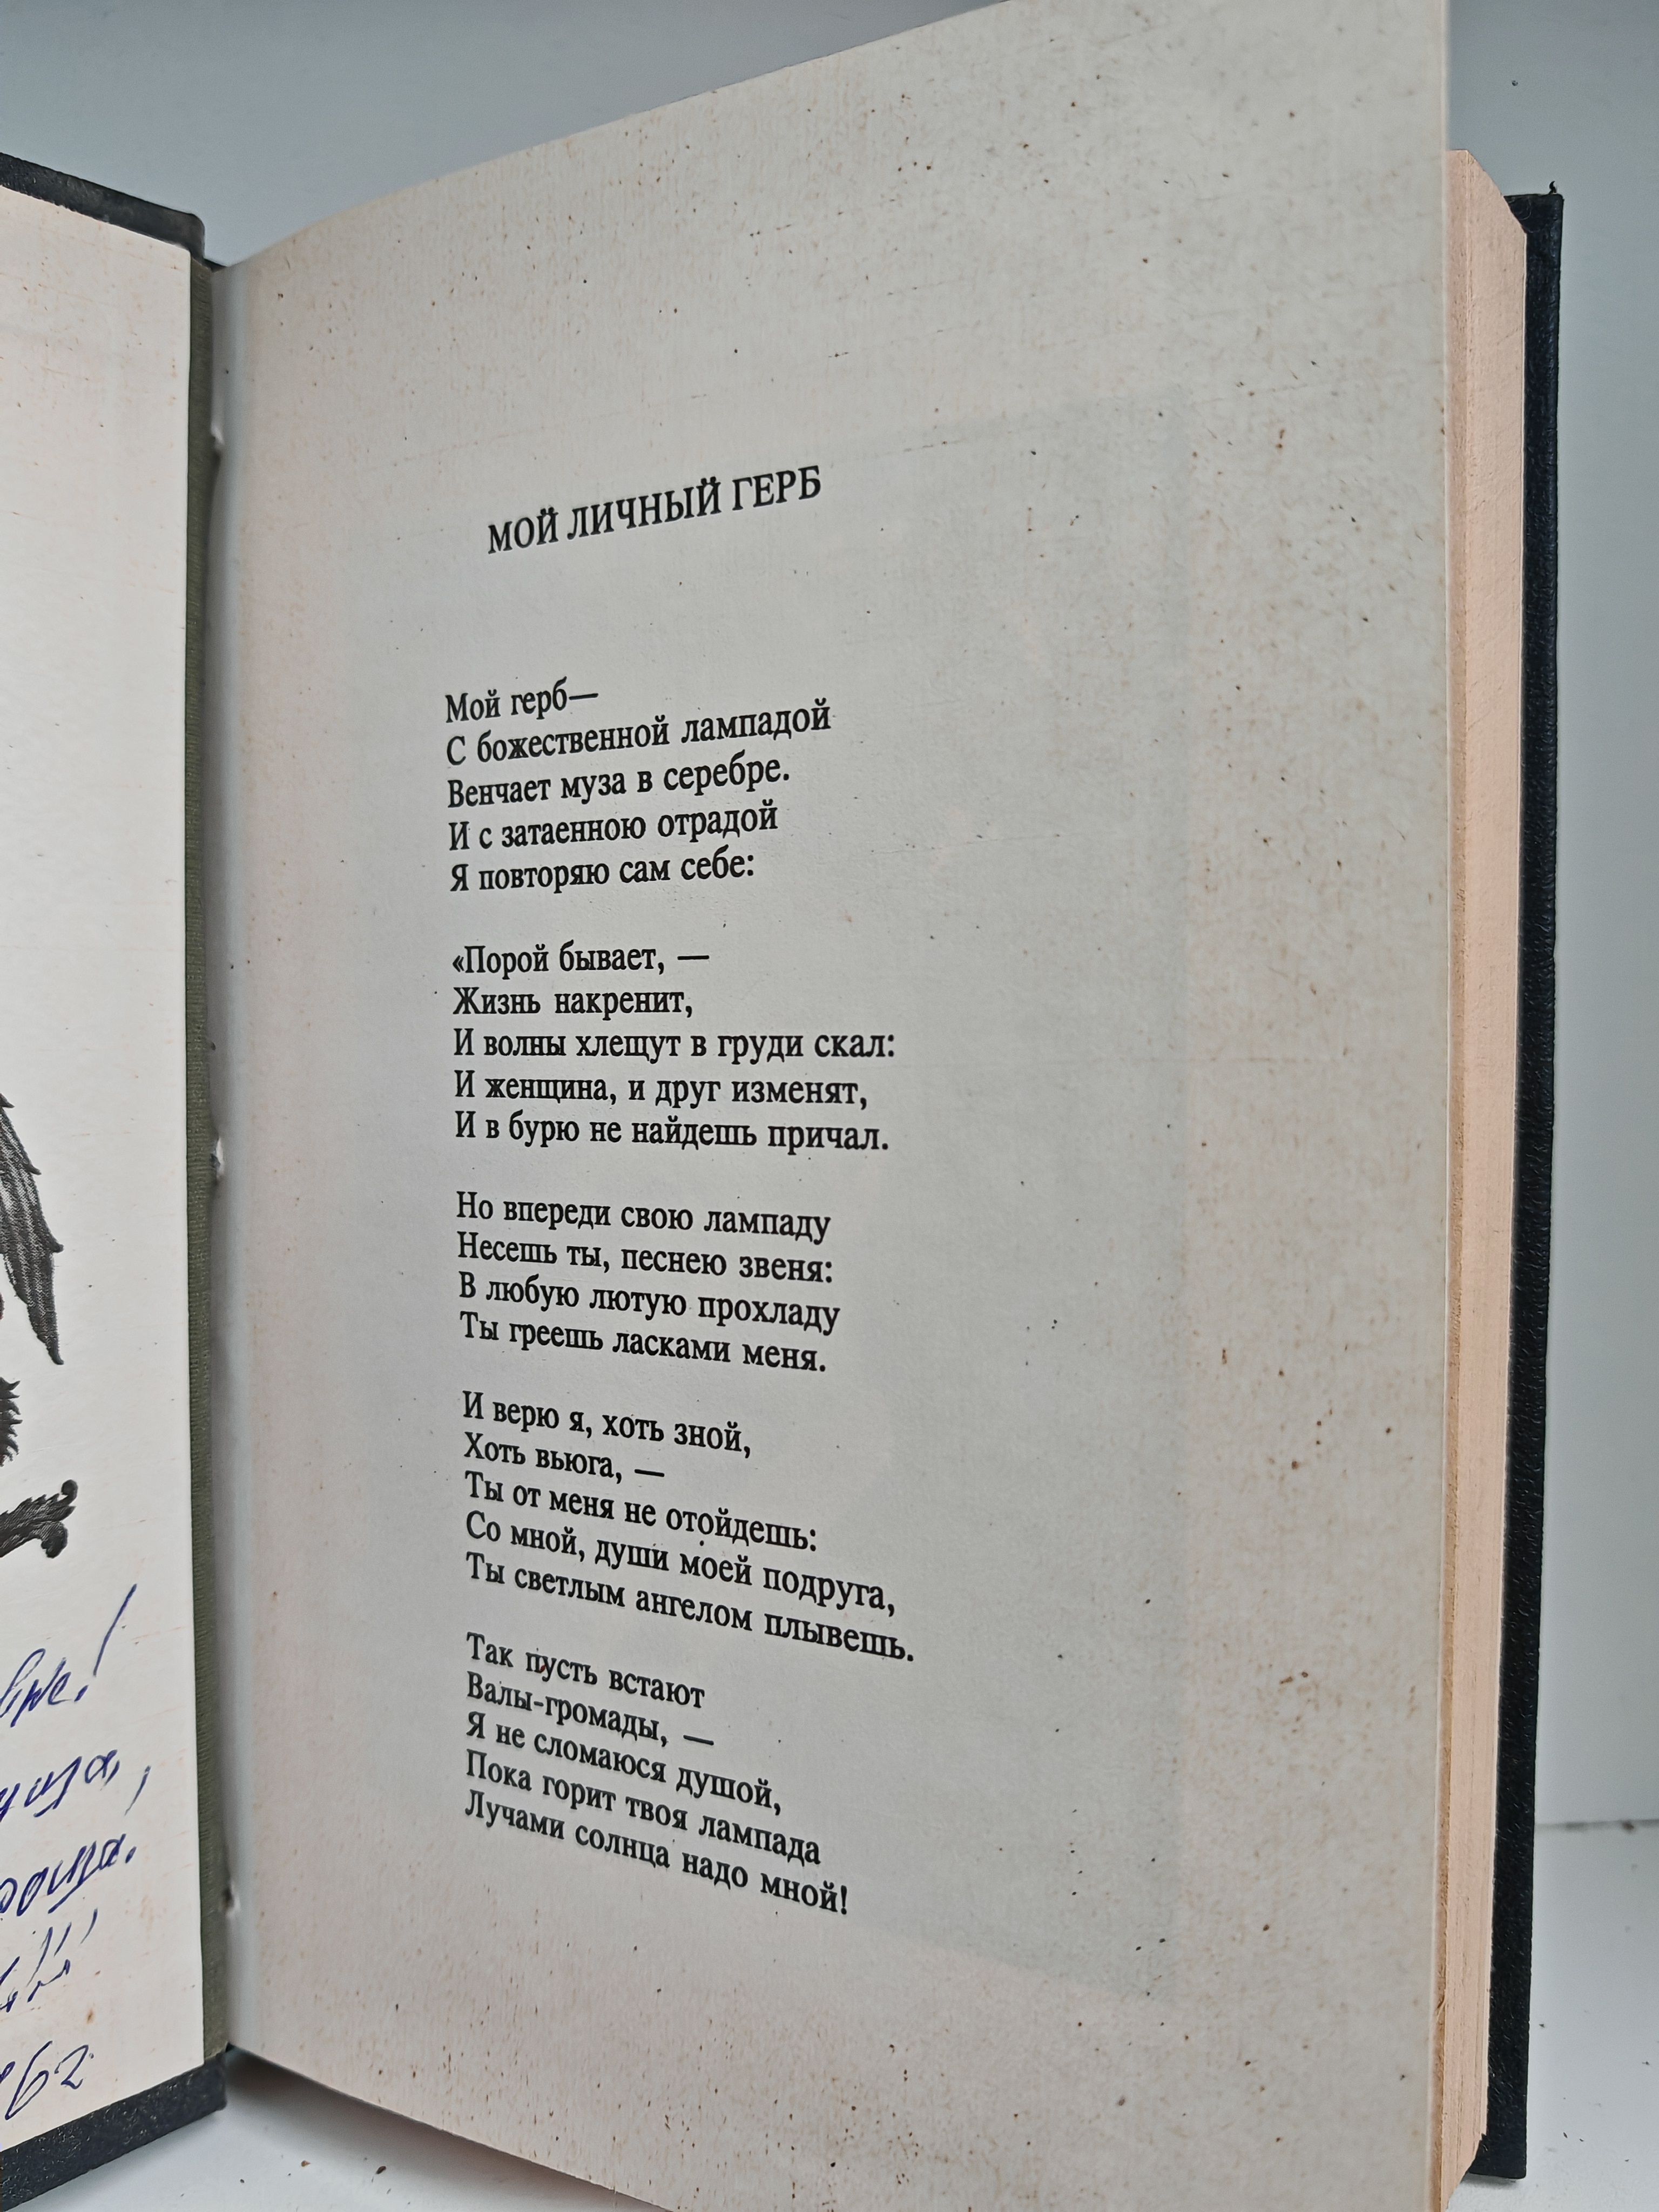 МОЙ ЛИЧНЫЙ ГЕРБ
Мой герб—
С божественной лампадой
Венчает муза в серебре.
И с затаенною отрадой
Я повторяю сам себе:
«Порой бывает, —
Жизнь накренит,
И волны хлещут в груди скал:
И женщина, и друг изменят,
И в бурю не найдешь причал.
Но впереди свою лампаду
Несешь ты, песнею звеня:
В любую лютую прохладу
Ты греешь ласками меня.
И верю я, хоть зной,
Хоть вьюга, —
Ты от меня не отойдешь:
Со мной, души моей подруга,
Ты светлым ангелом плывешь.
Так пусть встают
Валы-громады, —
Я не сломаюся душой,
Пока горит твоя лампада
Лучами солнца надо мной!